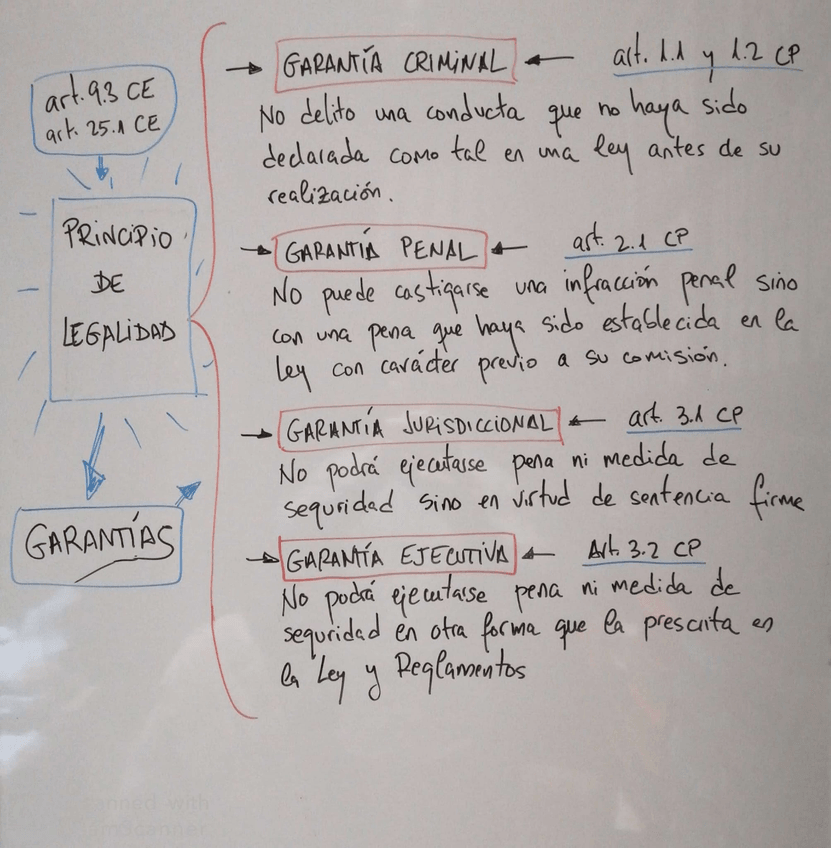 art. 9.3 CE
art. 25.1 CE
PRINCIPIO
DE
LEGALIDAD
GARANTÍAS
GARANTÍA CRIMINAL
art. 1.1 y 1.2 CP
No delito una conducta que no haya sido
declarada como tal en una ley antes de su
realización.
GARANTÍA PENAL
art. 2.1 CP
No puede castigarse una infracción penal sino
con una pena que haya sido establecida en la
Ley con carácter previo a su comisión.
GARANTÍA JURISDICCIONAL
art. 3.1 CP
No podrá ejecutarse pena ni medida de
seguridad sino en virtud de sentencia firme
GARANTÍA EJECUTIVA
Art. 3.2 CP
No podrá ejecutarse pena ni medida de
seguridad en otra forma que la prescrita en
la Ley y Reglamentos
Scanned with
CamScanner